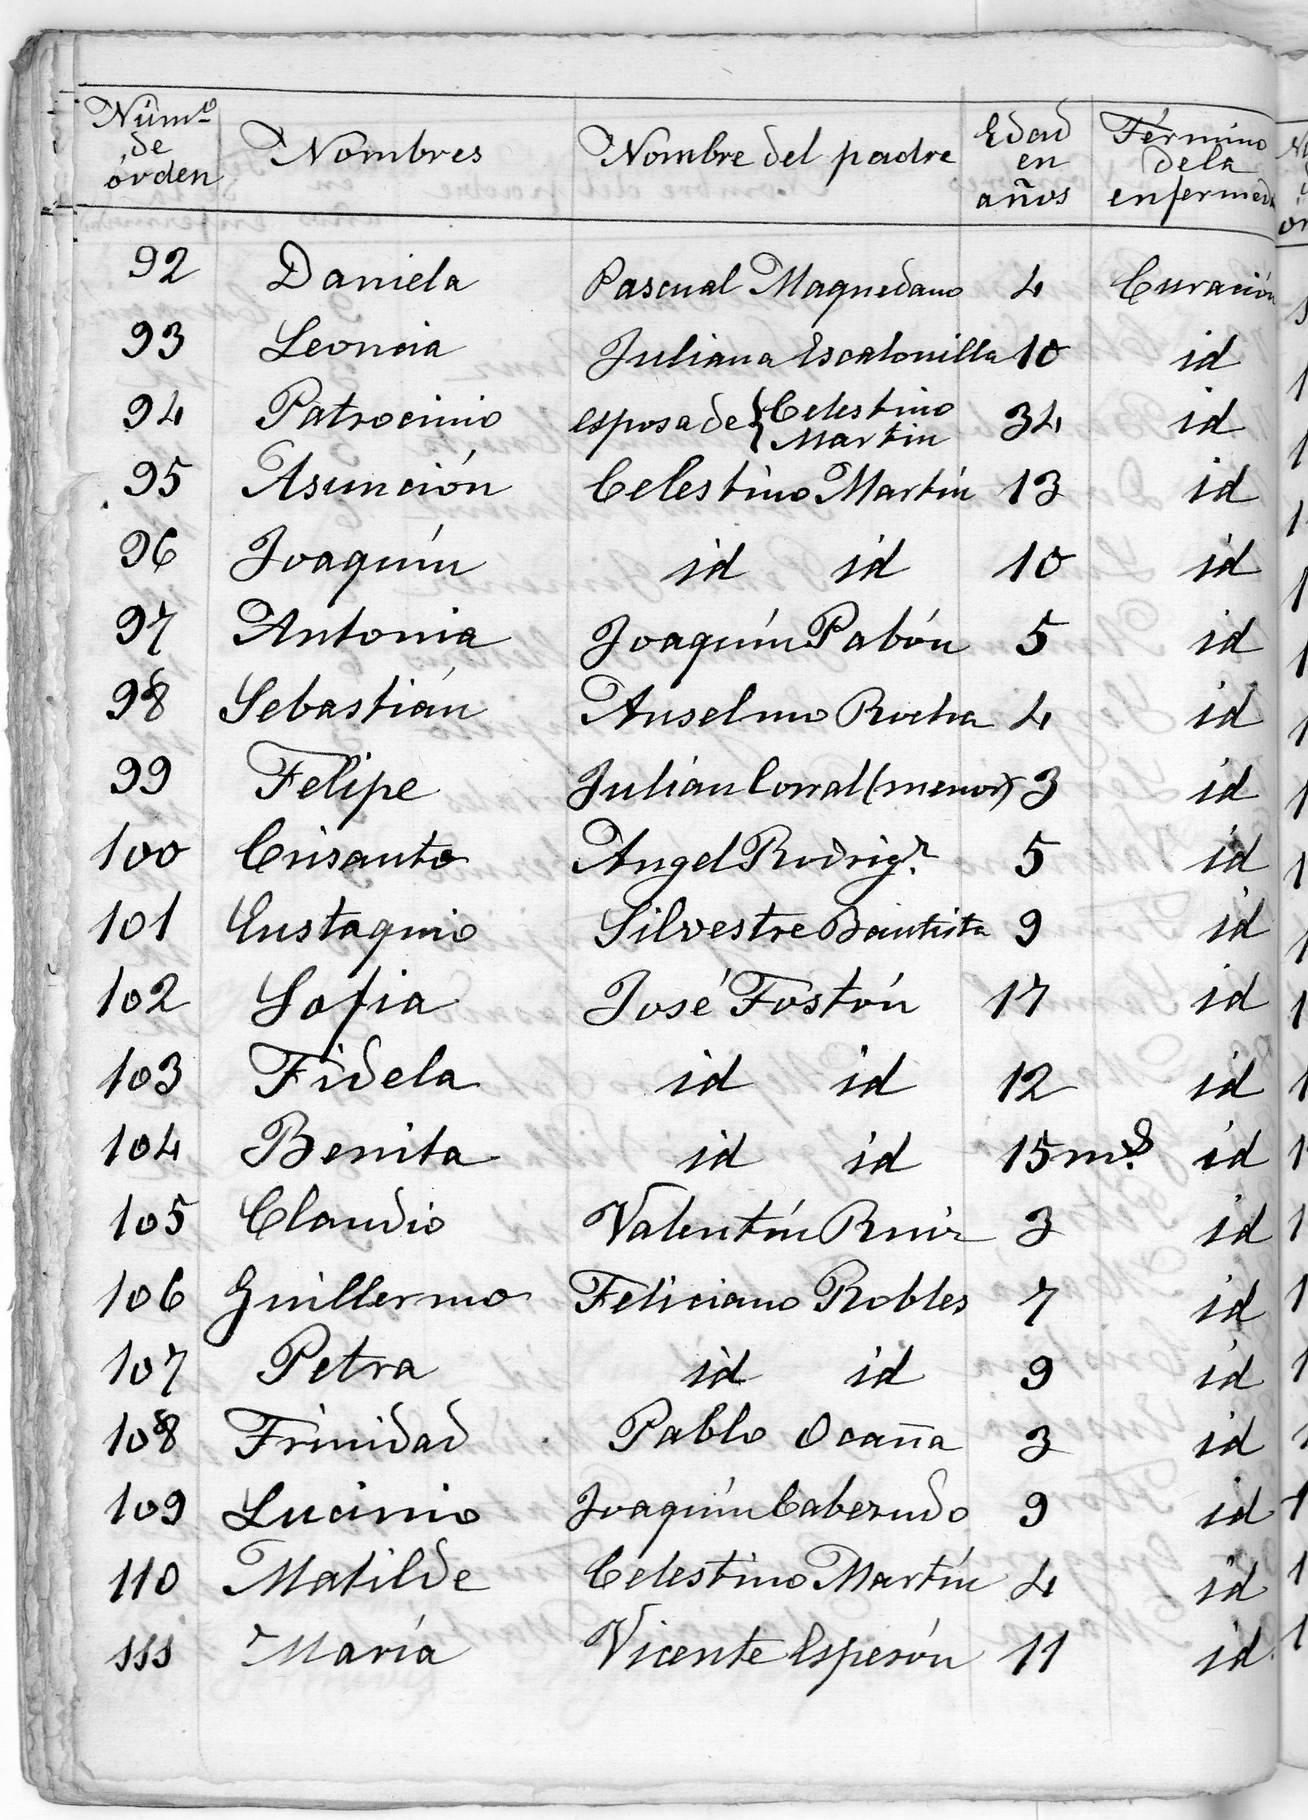 Númº de órden Nombres Nombre del padre Edad en años Término de la enfermed
92 Daniela Pascual Maquedano 4 Curación
93 Leoncia Juliana Escalonilla 10 id
94 Patrocinio esposa de { Celestino Martin 34 id
95 Asunción Celestino Martín 13 id
96 Joaquín id id 10 id
97 Antonia Joaquín Pabón 5 id
98 Sebastián Anselmo Rocha 4 id
99 Felipe Julián Corral (menor) 3 id
100 Crisanto Angel Rodrigr. 5 id
101 Eustaquio Silvestre Bautista 9 id
102 Sofia José Fostón 17 id
103 Fidela id id 12 id
104 Benita id id 15 ms. id
105 Claudio Valentín Ruiz 3 id
106 Guillermo Feliciano Robles 7 id
107 Petra id id 9 id
108 Trinidad Pablo Ocaña 3 id
109 Lucinio Joaquín Cabezudo 9 id
110 Matilde Celestino Martín 4 id
111 María Vicente Esperón 11 id